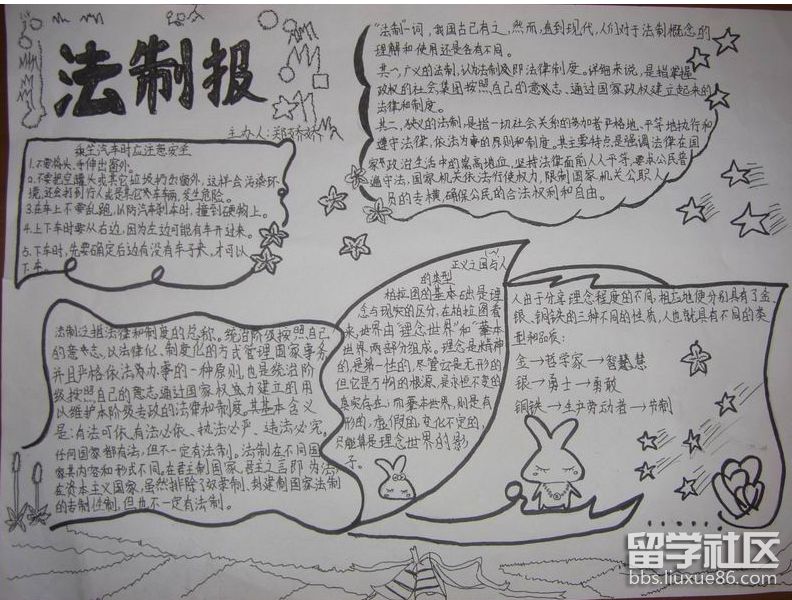 法制报
主办人:郑娇娇
乘坐汽车时应注意安全
1.不要将头、手伸出窗外。
2.不要把空罐头或其它垃圾扔出窗外,这样会污染环
境,还会打到行人或是其它车辆,发生危险。
3.在车上不要乱跑,以防汽车刹车时,撞到硬物上。
4.上下车时要从右边,因为左边可能有车开过来。
5.下车时,先要确定后边有没有车子来,才可以
下车。
“法制”一词,我国古已有之,然而,直到现代,人们对于法制概念的
理解和使用还是各有不同。
其一,广义的法制,认为法制即法律制度。详细来说,是指掌握
政权的社会集团按照自己的意志、通过国家政权建立起来的
法律和制度。
其二,狭义的法制,是指一切社会关系的参加者严格地、平等地执行和
遵守法律,依法办事的原则和制度。其主要特点是强调法律在国
家政治生活中的崇高地位,坚持法律面前人人平等,要求公民普
遍守法,国家机关依法行使权力,限制国家机关公职人
员的专横,确保公民的合法权利和自由。
法制泛指法律和制度的总称。统治阶级按照自己
的意志、以法律化、制度化的方式管理国家事务
并且严格依法办事的一种原则,也是统治阶
级按照自己的意志通过国家权力建立的用
以维护本阶级专政的法律和制度。其基本含义
是:有法可依、有法必依、执法必严、违法必究。
任何国家都有法,但不一定有法制。法制在不同国
家其内容和形式不同。在君主制国家,君主之言即为法
在资本主义国家,虽然排除了奴隶制、封建制国家法制
的专制性制,但也不一定有法制。
正义之国与人
的类型
柏拉图的基本础是理
念与现实的区分,在柏拉图看
来,世界由“理念世界”和“基本
世界”两部分组成。理念是精神
的,是第一性的,尽管它是无形的
但它是万物的根源,是永恒不变的
真实存在;而基本世界,则是有
形的、虚假的、变化不定的,
只能算是理念世界的影
子。
人由于分享理念程度的不同,粗劣地便分别具有了金、
银、铜铁的三种不同的性质,人也就具有不同的类
型和品质:
金→哲学家→智慧
银→勇士→勇敢
铜铁→生产劳动者→节制
留学社区
bbs.liuxue86.com